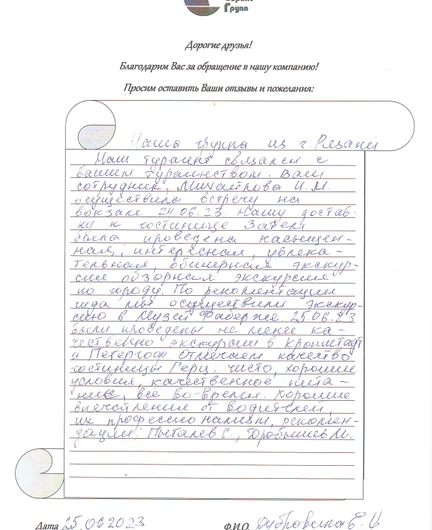 Групп
Дорогие друзья!
Благодарим Вас за обращение в нашу компанию!
Просим оставить Ваши отзывы и пожелания:
Наша группа из г. Рязани
Наш турагент связался с
вашим турагентством. Ваш
сотрудник, Михайлова И.М.
осуществила встречу на
вокзале 24.06.23. Нашу достав-
ку к гостинице Затем
была проведена насыщен-
ная, интересная, увлека-
тельная обширная экскур-
сия обзорная экскурсия
по городу. По рекомендации
гида мы осуществили экскур-
сию в Музей Фаберже. 25.06.23
были проведены не менее ка-
чественно экскурсии в Кронштадт
и Петергоф. Отмечаем качество
гостиницы Герц: чисто, хорошие
условия, качественное пита-
ние, все во-время. Хорошие
впечатления от водителей,
их профессионализм, рекомен-
дации: С., Дробышев М.
Дата 25.06.2023 Ф.И.О. Дубровина Е.И